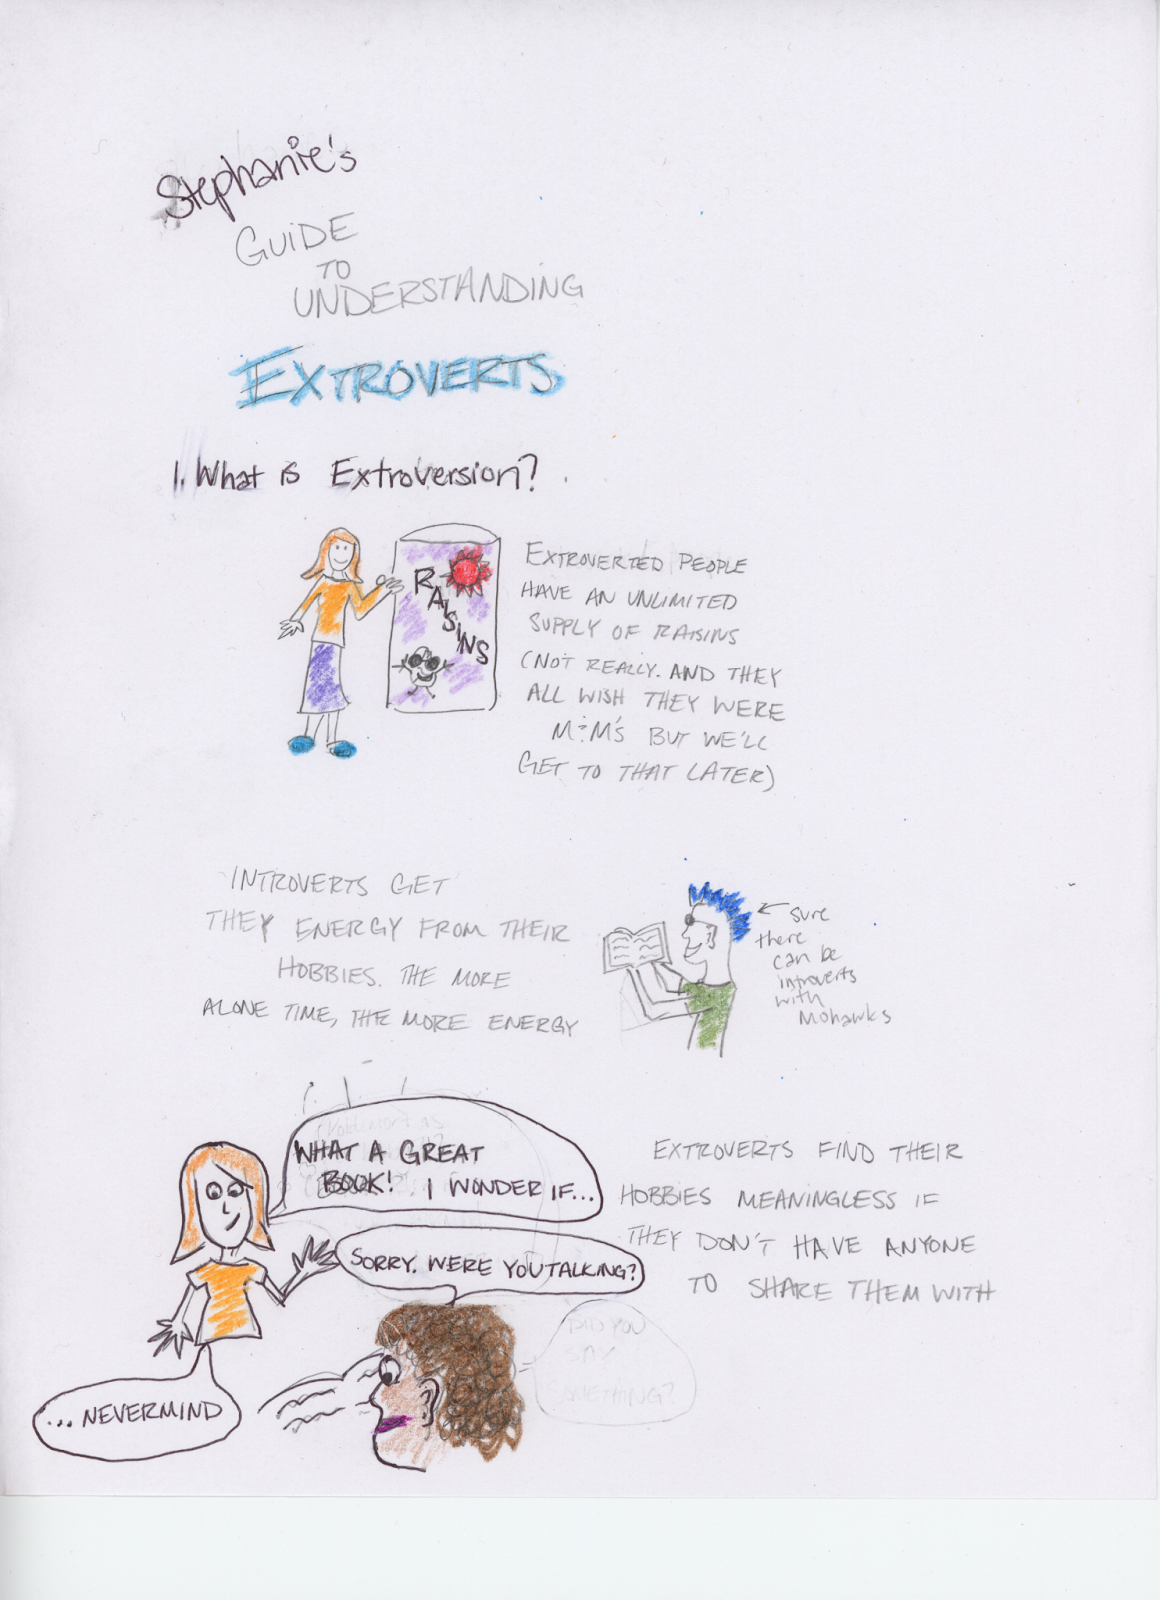 Stephanie's
GUIDE
TO
UNDERSTANDING
EXTROVERTS
1. What is Extroversion?
RAISINS
EXTROVERTED PEOPLE
HAVE AN UNLIMITED
SUPPLY OF RAISINS
(NOT REALLY. AND THEY
ALL WISH THEY WERE
M&M'S BUT WE'LL
GET TO THAT LATER)
INTROVERTS GET
THEY ENERGY FROM THEIR
HOBBIES. THE MORE
ALONE TIME, THE MORE ENERGY
sure
there
can be
introverts
with
Mohawks
WHAT A GREAT
BOOK! I WONDER IF...
SORRY. WERE YOU TALKING?
...NEVERMIND
EXTROVERTS FIND THEIR
HOBBIES MEANINGLESS IF
THEY DON'T HAVE ANYONE
TO SHARE THEM WITH
DID YOU
SAY
SOMETHING?